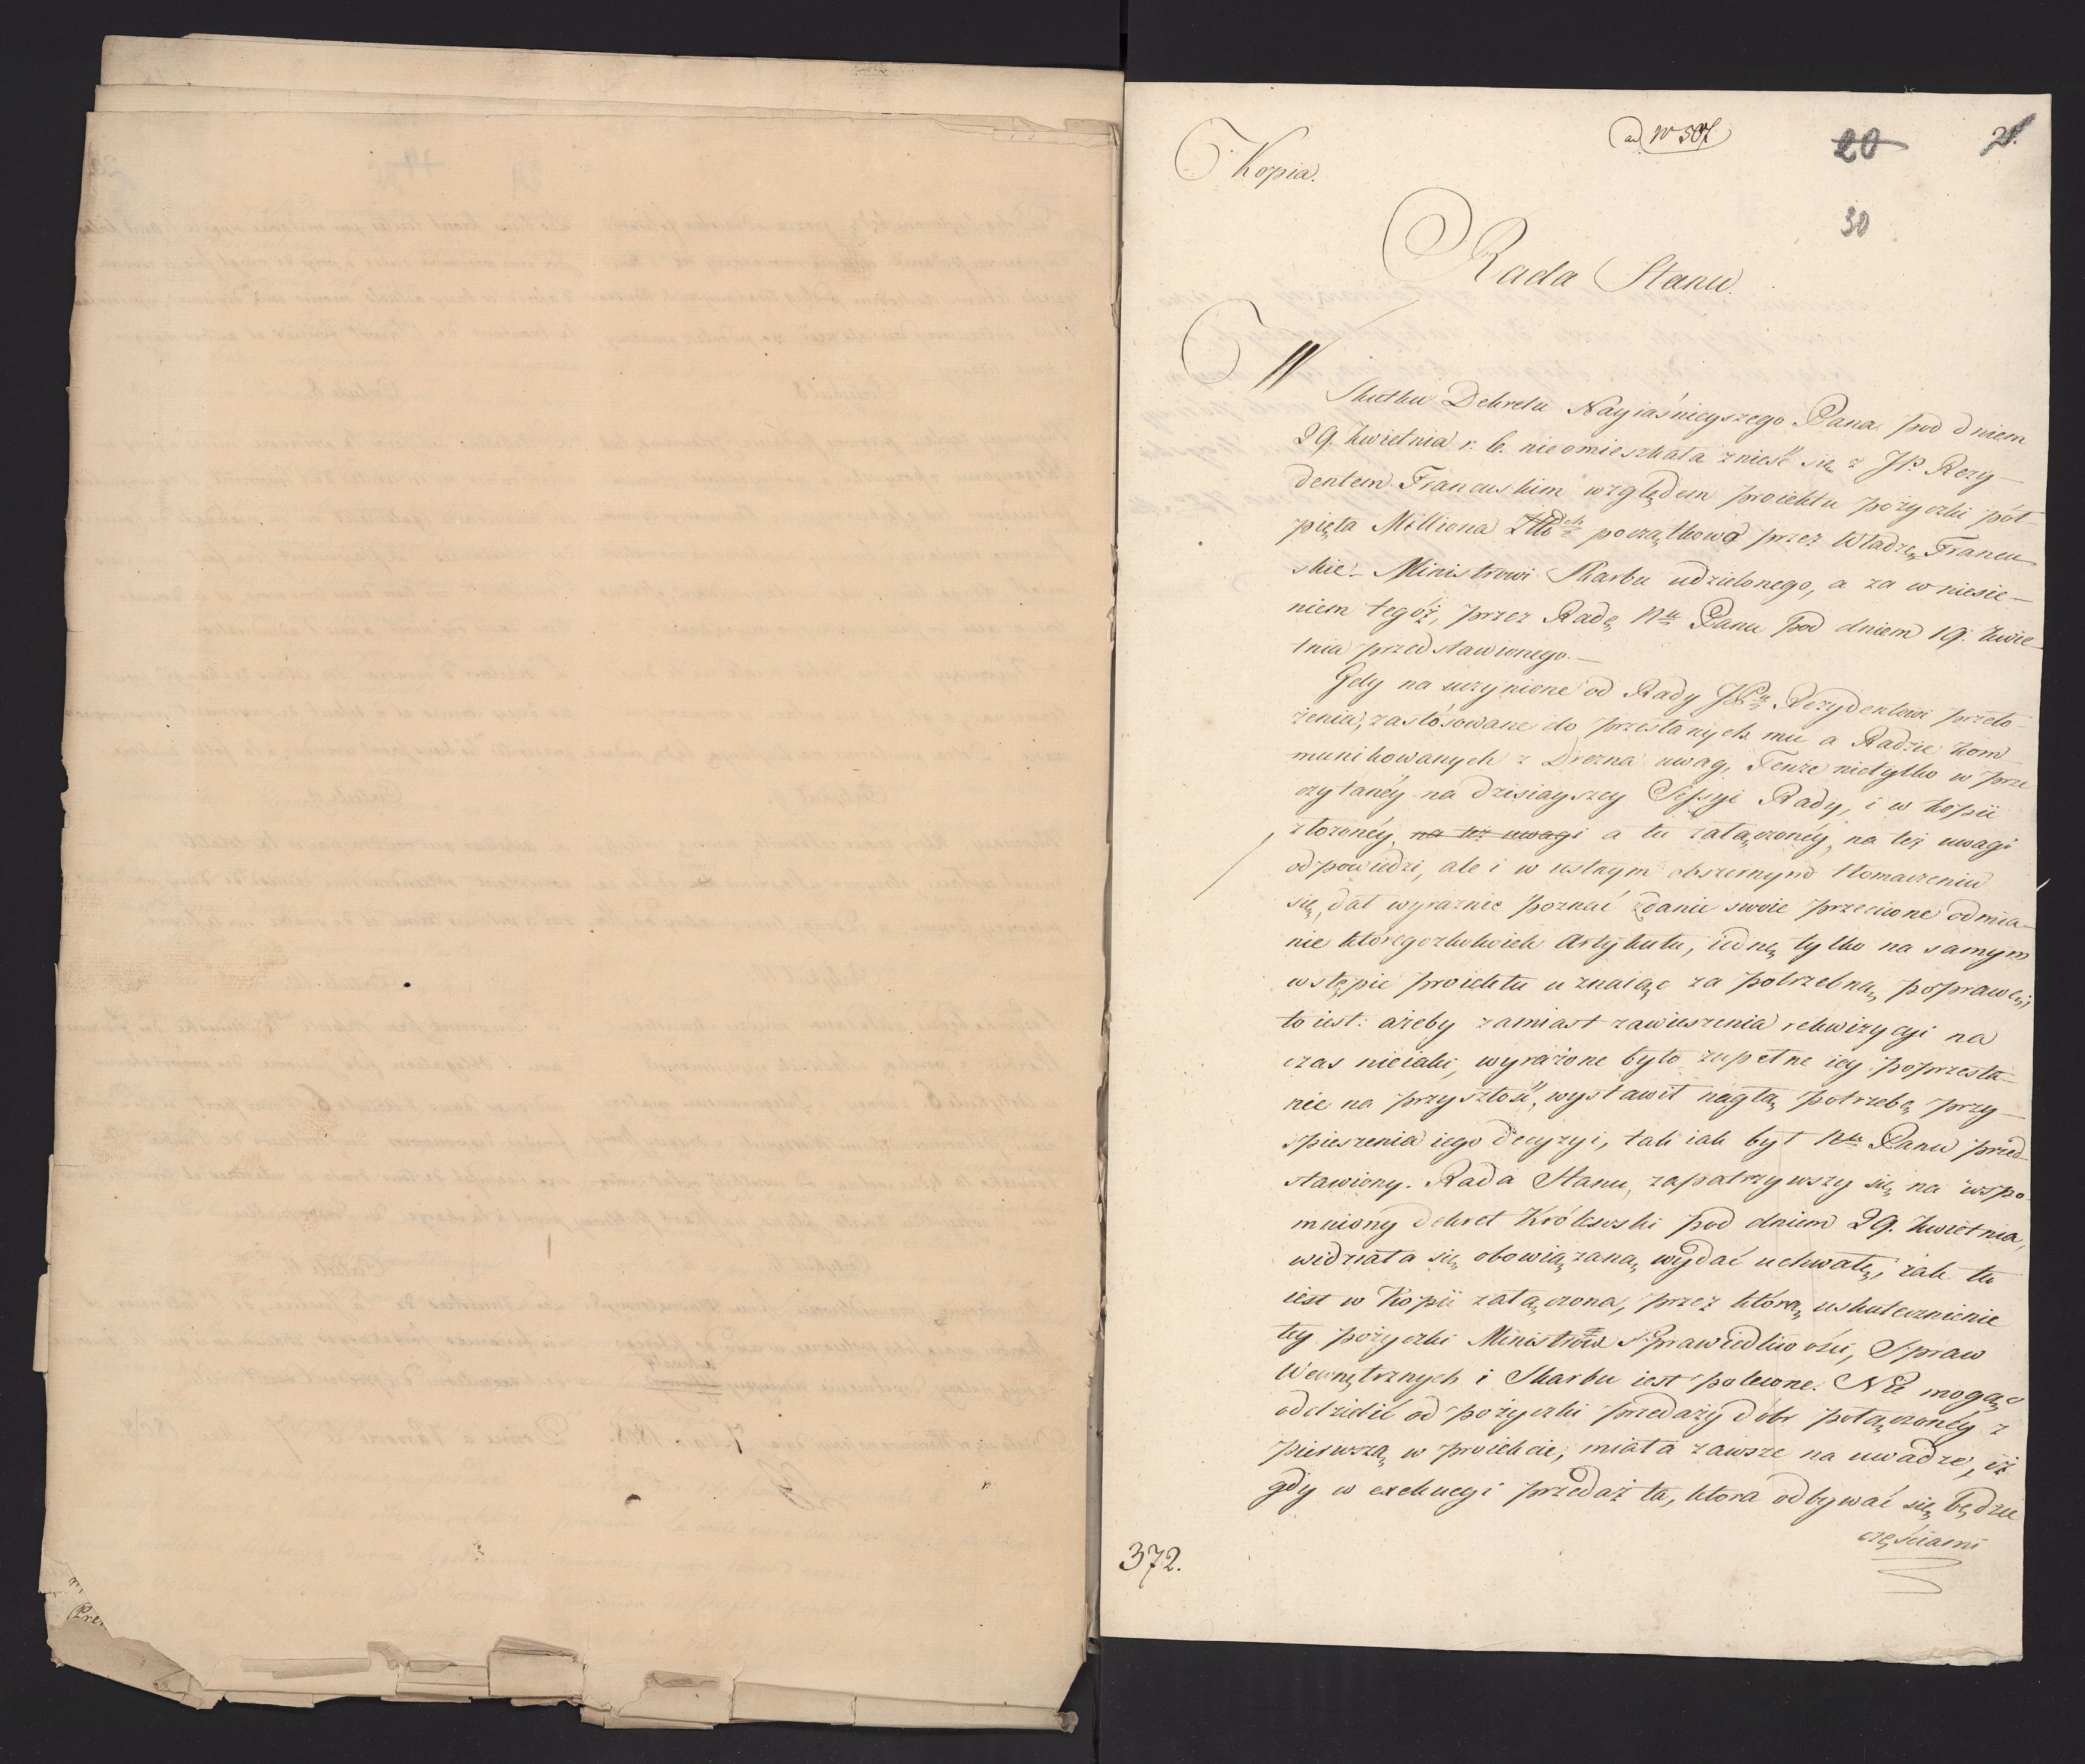 ad N 507
20
21.
30
Kopia.
Rada Stanu.
W
Skutku Dekretu Nayiaśnieyszego Pana pod dniem
29. Kwietnia r. b. nieomieszkała znieść się z JP. Rezy-
dentem Francuskim względem proiektu pożyczki pół-
pięta Milliona początkowo przez Władzę Francu-
skie Ministrowi Skarbu udzielonego, a za wniesie-
niem tegóż, przez Radę Panu pod dniem 19. Kwie-
tnia przedstawionego.—
Gdy na uczynione od Rady Rezydentowi przeło-
żenia, zastósowane do przesłanych mu a Radzie kom-
munikowanych z Drezna uwag, Tenże nietylko w prze
czytanéy na dzisiayszey Sessyi Rady, i w kopii
złożonéy, na też uwagi a tu załączonéy, na też uwagi
odpowiedzi, ale i w ustnym obszernym tłomaczeniu
się, dał wyraźnie poznać zdanie swoie przeciwne odmia-
nie któregożkolwiek Artykułu, iednę tylko na samym
wstępie proiektu uznaiąc za potrzebną poprawę;
to iest: ażeby zamiast zawieszenia rekwizycyi na
czas nieiaki, wyrażone było zupełne iey poprzesta-
nie na przyszłość, wystawił nagłą potrzebę przy-
spieszenia iego decyzyi, tak iak był Panu przed-
stawiony. Rada Stanu, zapatrzywszy się na wspo-
mniony dekret Królewski pod dniem 29. Kwietnia,
widziała się obowiązaną wydać uchwałę, iak tu
iest w Kopii załączona, przez którą uskutecznienie
tey pożyczki Ministrów Sprawiedliwości, Spraw
Wewnętrznych i Skarbu iest polecone. Nie mogąc
oddzielić od pożyczki przedaży dóbr połączonéy z
pierwszą w proiekcie, miała zawsze na uwadze, iż
gdy w exekucyi przedaż ta, która odbywać się będzie
częściami
372.